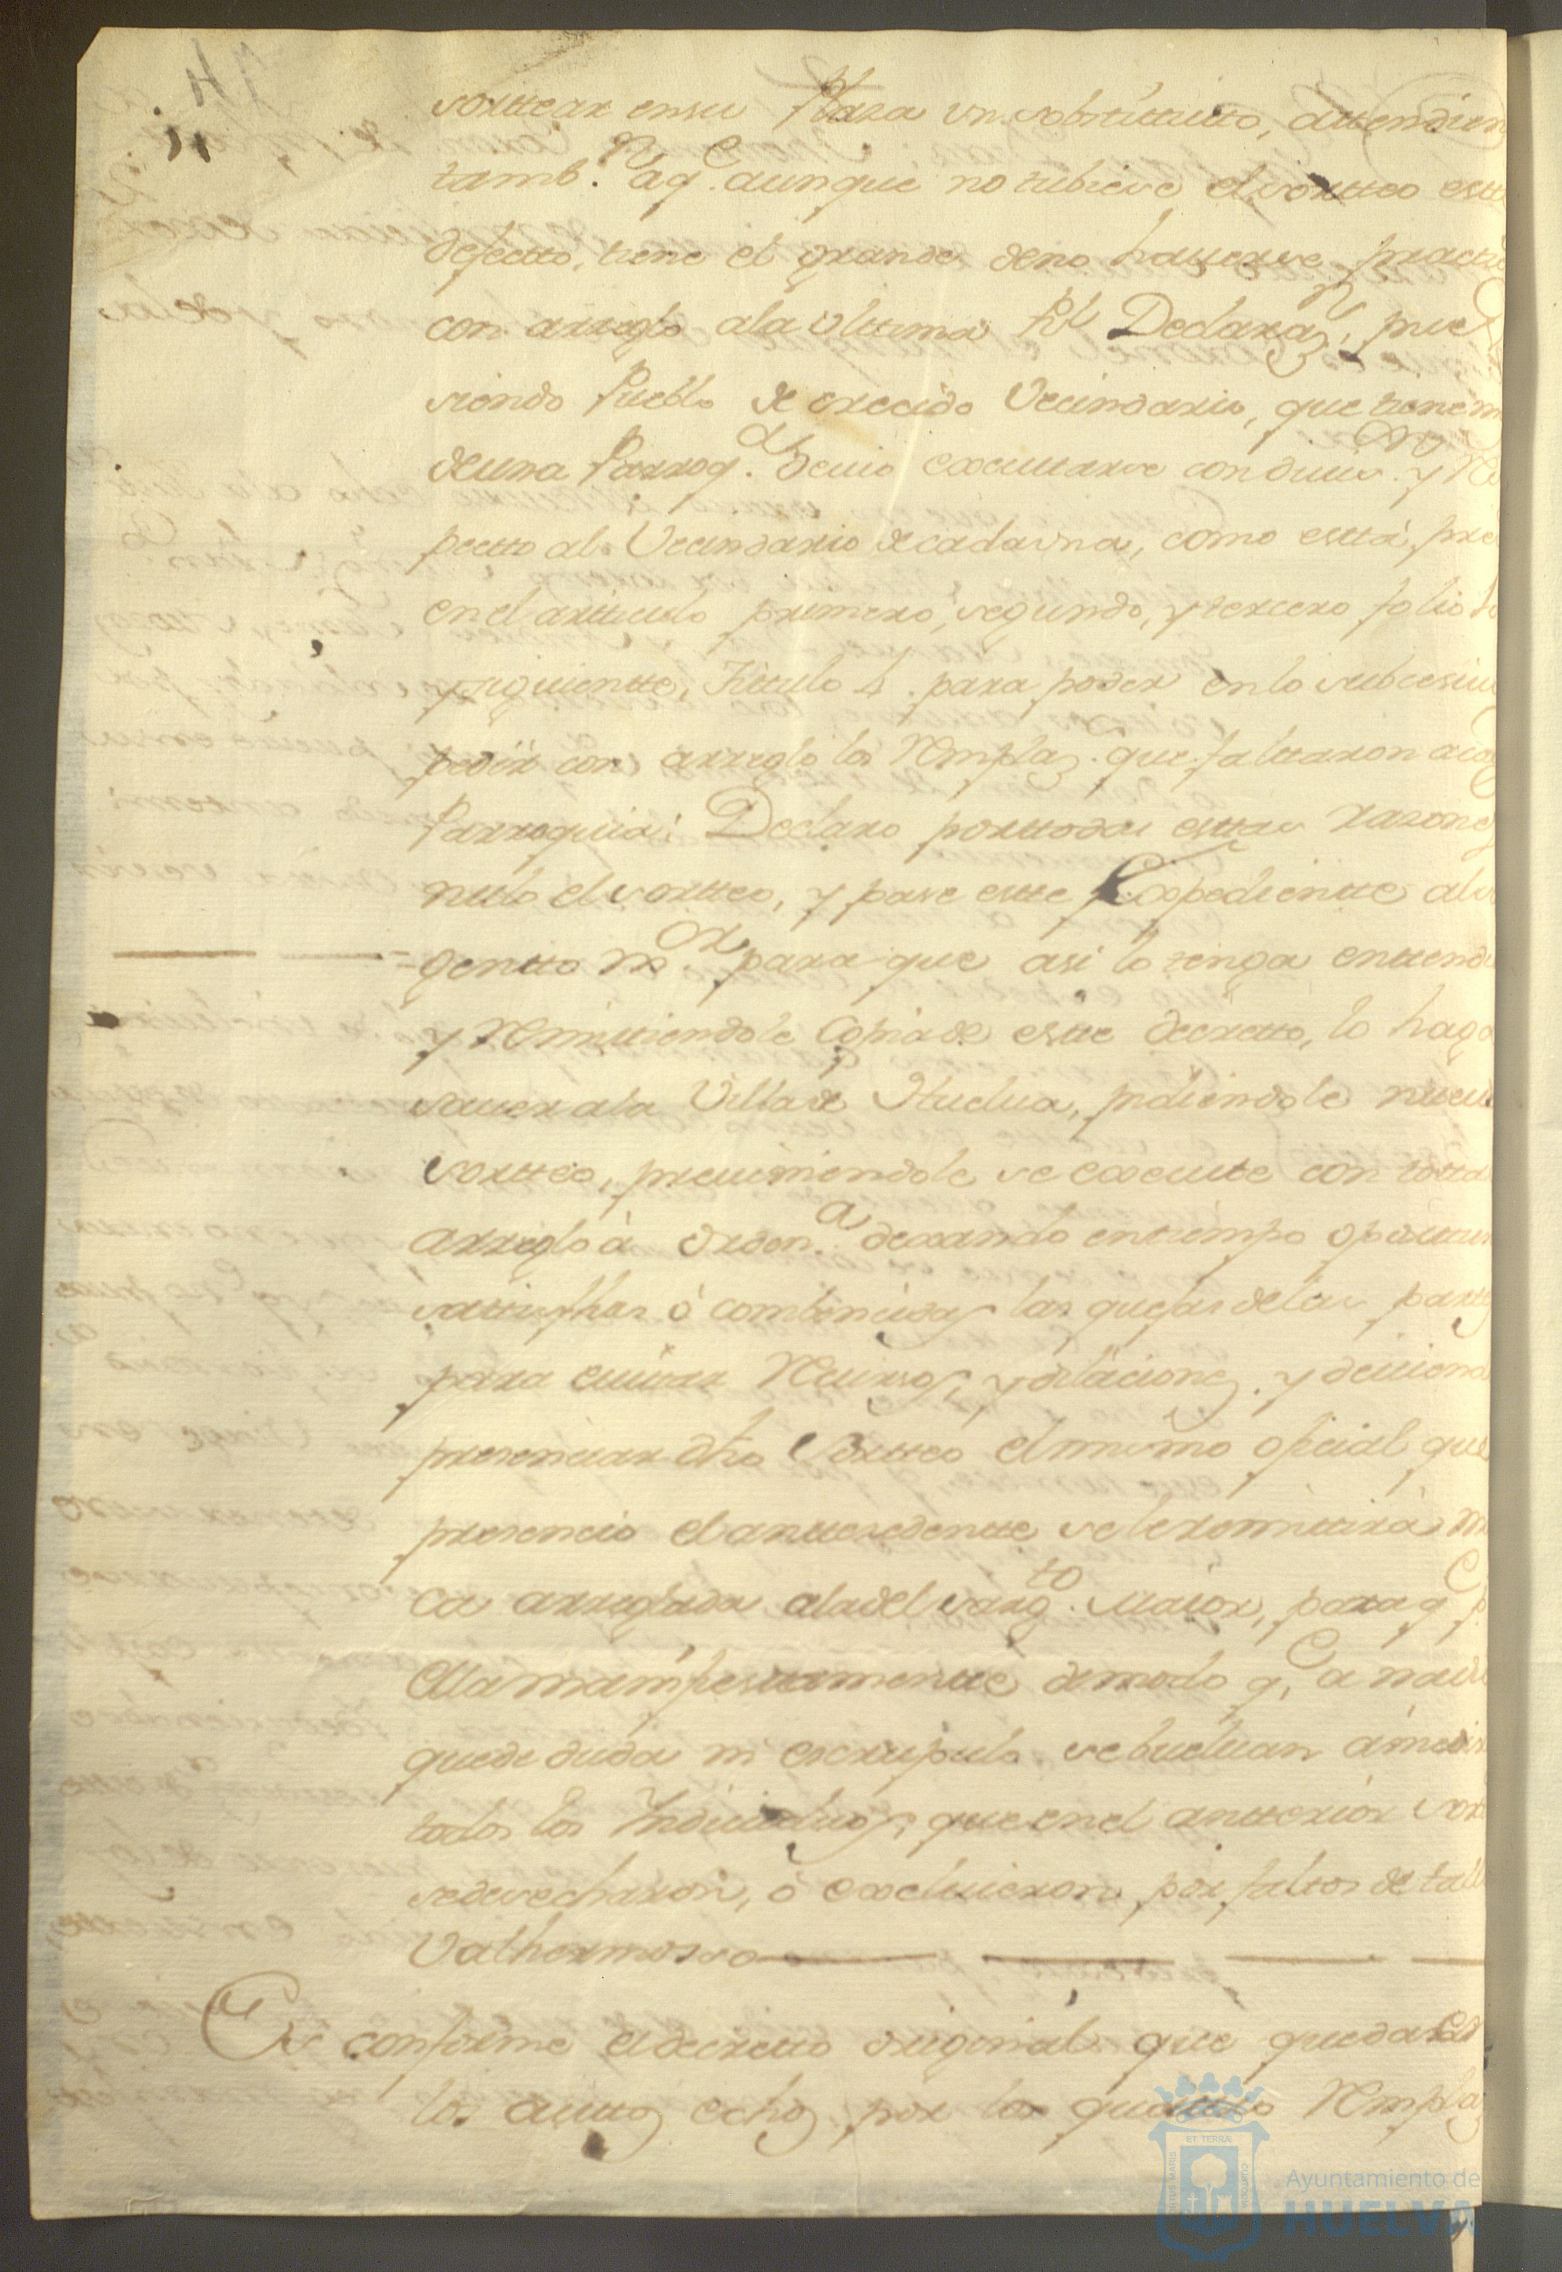 sorttear en su Plaza un sobstituto, attendien
tamb.n a q.e aunque no tubiese el sortteo estte
defecto, tiene el grande de no hauerse practic
con arreglo a la Ultima Rl. Declaraz.n, pues
siendo Pueblo de crecido Vecindario, que tiene m
de una Parroq.a deuio executarse con diuis.on y Res
pecto al Vecindario de cada una, como está pre
en el articulo primero, segundo, y tercero folio
y siguiente, Titulo 4. para poder en lo subcesiuo
pedir con arreglo los Remplaz. que faltaron a cad
Parroquia: Declaro por ttodas esttas razones
nulo el sortteo, y pase estte Expediente al s
gento m.or para que asi lo tenga entend
y Remittiendole Copia de estte decretto, lo haga
sauer a la Villa de Huelua, pidiendole nueuo
sortteo, preuiniendole se execute con totta
arreglo à Orden.a dexando en tiempo oportun
sattisfhas ò combencidas las quejas de las partes
para euitar Recursos, y dilaciones. y deuiend
presenciar dho Sortteo el mismo oficial que
presencio el anttecedente se le remittirà m
ca arreglada a la del sarg.to maior, para q.e p.
ella manifiestamente de modo q.e a nadie
quede duda ni escrupulo se bueluan à medir
todos los Indiuiduos, que en el antterior sort
se desecharon, ò excluieron por faltos de talla
Valhermoso
Es conforme el decretto original que queda en
los auttos echos por los quatro Remplaz
Ayuntamiento de
HUELVA